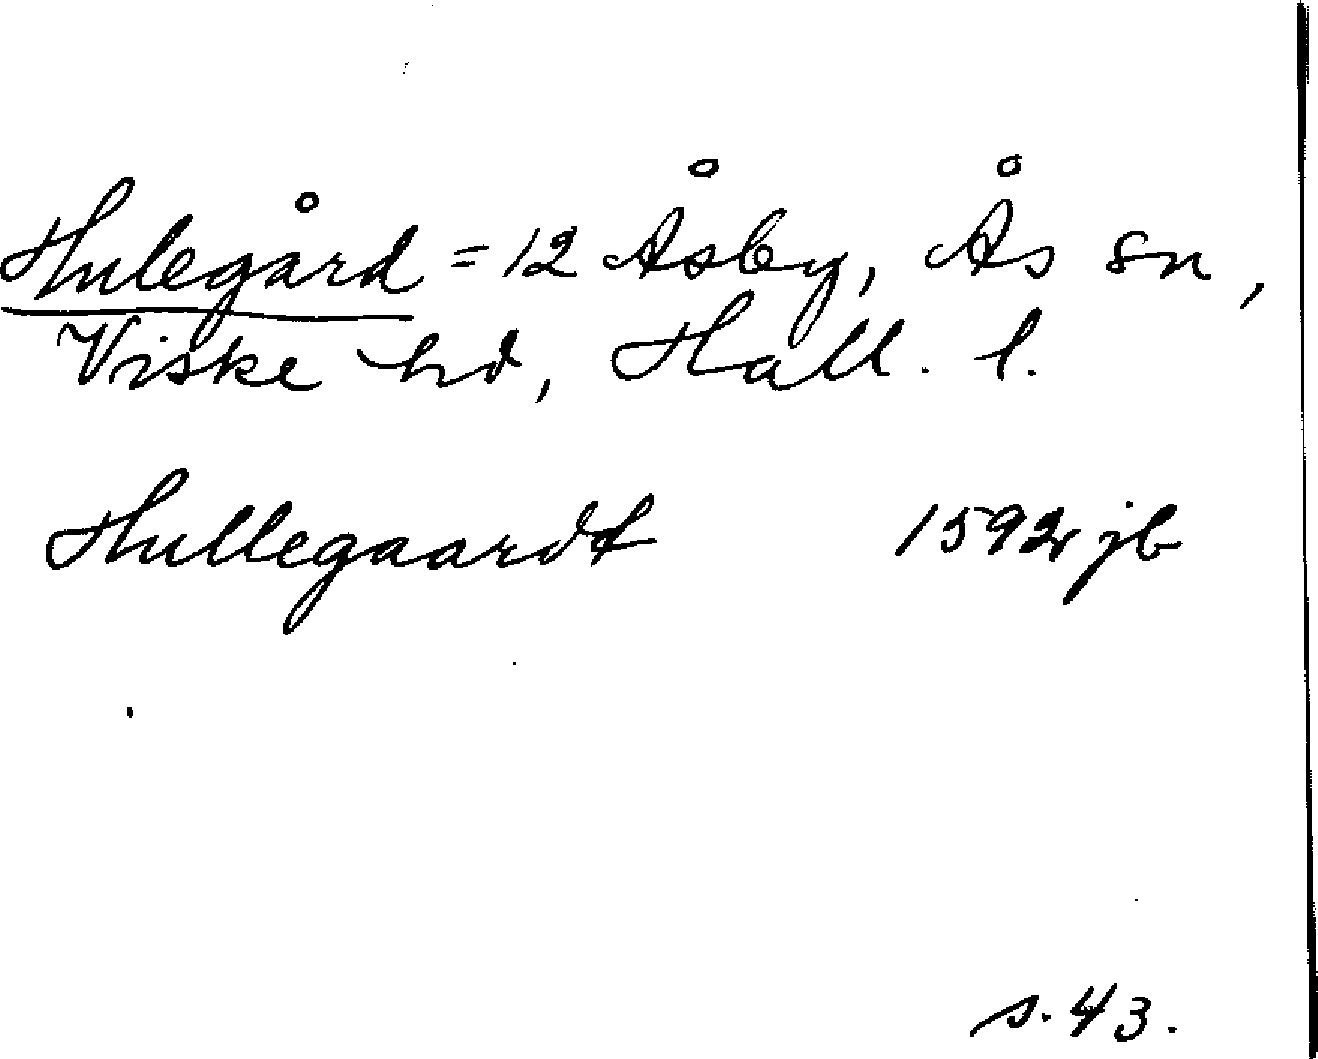 Hulegård = 12 Åsby, Ås sn,
Viske hd, Hall. l.
Hullegaardt 1592 jb
s. 43.